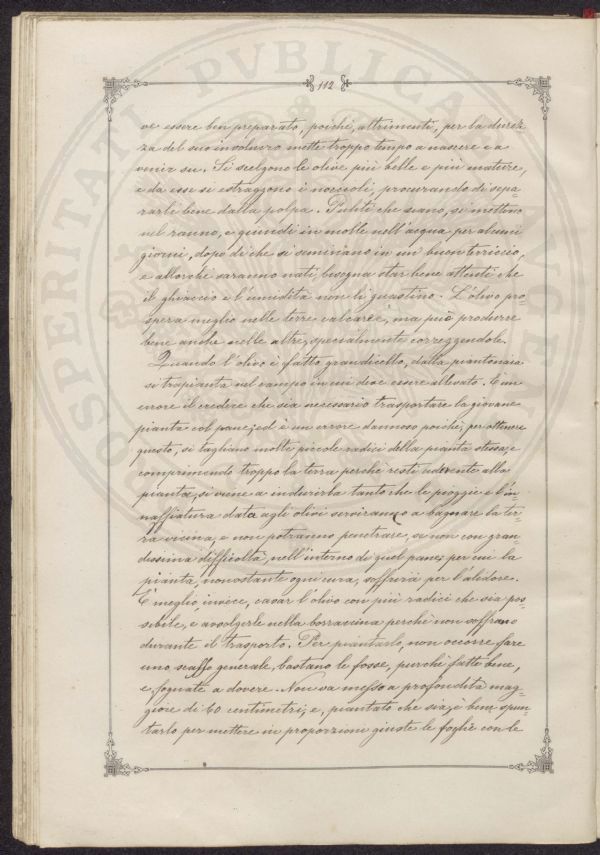 112
ve essere ben preparato, poichè, altrimenti, per la durez=
za del suo involucro mette troppo tempo a nascere e a
venir su. Si scelgono le olive più belle e più mature,
e da esse si estraggono i noccioli, procurando di sepa=
rarli bene dalla polpa. Puliti che siano, si mettono
nel ranno, e quindi in molle nell'acqua per alcuni
giorni, dopo di che si seminano in un buon terriccio,
e allorchè saranno nati bisogna star bene attenti che
il ghiaccio e l'umidità non li guastino. L'olivo pro=
spera meglio nelle terre calcaree, ma può produrre
bene anche nelle altre, specialmente correggendole.
Quando l'olivo è fatto grandicello, dalla piantonaia
si trapianta nel campo in cui deve essere allevato. È un
errore il credere che sia necessario trasportare la giovane
pianta col pane, ed è un errore dannoso poichè, per ottenere
questo, si tagliano molte piccole radici della pianta stessa, e
comprimendo troppo la terra perchè resti aderente alla
pianta, si viene a indurirla tanto che le pioggie e l'in=
naffiatura data agli olivi serviranno a bagnare la ter=
ra vicina, e non potranno penetrare, se non con gran
dissima difficoltà, nell'interno di quel pane; per cui la
pianta, nonostante ogni cura, soffrirà per l'alidore.
È meglio, invece, cavar l'olivo con più radici che sia pos=
sibile, e avvolgerle nella borraccina perchè non soffrano
durante il trasporto. Per piantarlo, non occorre fare
uno scasso generale, bastano le fosse, purchè fatte bene,
e fognate a dovere. Non va messo a profondità mag=
giore di 60 centimetri, e, piantato che sia, è bene spun=
tarlo per mettere in proporzioni giuste le foglie con le
PROSPERITATI PVBLICAE AVGENDAE